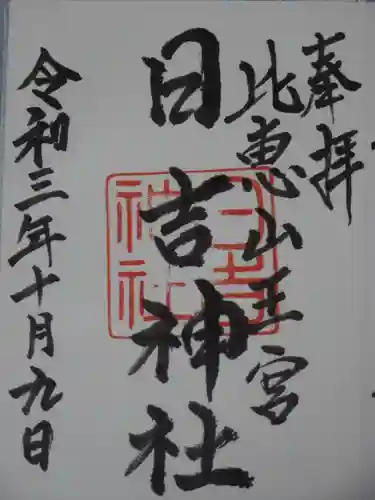 奉拝
比恵山王宮
日吉神社
令和三年十月九日
日吉
神社